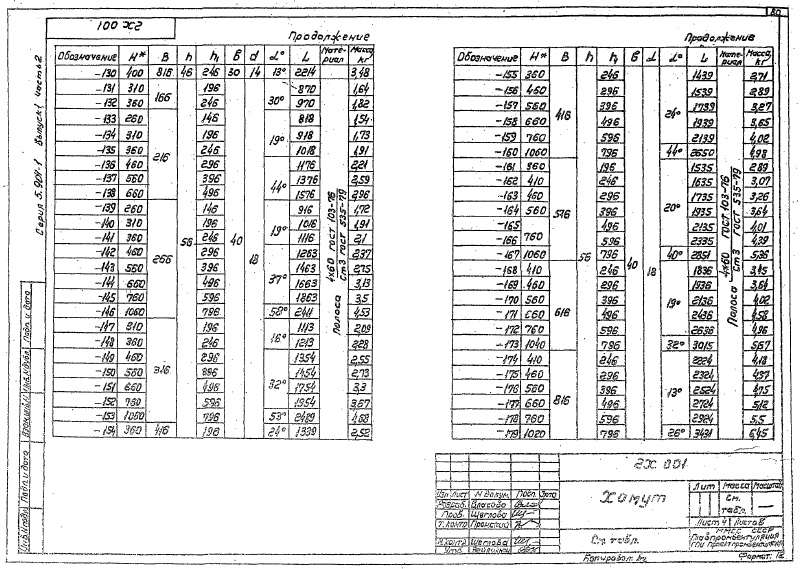 80
100 ХS
Продолжение
Обозначение H* B h h₁ б d α° L Мате- риал Масса, кг
-130 400 816 46 246 30 14 13° 2214 3,48
-131 310 166 196 870 1,64
-132 360 246 30° 970 1,82
-133 260 146 818 1,54
-134 310 196 19° 918 1,73
-135 360 216 246 1018 1,91
-136 460 296 1176 2,21
-137 560 396 44° 1376 2,59
-138 660 496 1576 2,96
-139 260 146 916 1,72
-140 310 196 19° 1016 1,91
-141 360 56 246 40 1116 2,1
-142 460 266 296 18 1263 2,37
-143 560 396 1463 2,75
-144 660 496 37° 1663 3,13
-145 760 596 1863 3,5
-146 1060 796 58° 2411 4,53
-147 310 196 1113 2,09
-148 360 246 16° 1213 2,28
-149 460 296 1354 2,55
-150 560 316 396 1454 2,73
-151 660 496 32° 1754 3,3
-152 760 596 1954 3,67
-153 1060 796 53° 2489 4,68
-154 360 416 196 24° 1339 2,52
Полоса 4х60 ГОСТ 103-76 Ст3 ГОСТ 535-79
Продолжение
Обозначение H* B h h₁ б d α° L Мате- риал Масса, кг
-155 360 246 1439 2,71
-156 460 296 1539 2,89
-157 560 416 396 24° 1739 3,27
-158 660 496 1939 3,65
-159 760 596 2139 4,02
-160 1060 796 44° 2650 4,98
-161 360 196 1535 2,89
-162 410 246 1635 3,07
-163 460 296 1735 3,26
-164 560 516 396 20° 1935 3,64
-165 496 2135 4,01
-166 760 596 2335 4,39
-167 1060 56 796 40 40° 2851 5,36
-168 410 246 18 1836 3,45
-169 460 296 1936 3,64
-170 560 396 19° 2136 4,02
-171 660 616 496 2436 4,58
-172 760 596 2636 4,96
-173 1040 796 32° 3015 5,67
-174 410 246 2224 4,18
-175 460 296 2324 4,37
-176 560 396 13° 2524 4,75
-177 660 816 496 2724 5,12
-178 760 596 2924 5,5
-179 1020 796 26° 3431 6,45
Полоса 4х60 ГОСТ 103-76 Ст3 ГОСТ 535-79
Серия 5.904-1 Выпуск 1 часть 2
2Х 001
Хомут
Лит Масса Масштаб
См. табл. —
Изм Лист N докум. Подп. Дата
Разраб. Власова
Пров. Щеглова
Т.контр
Н.контр Щеглова
Утв.
Лист 4 Листов
См. табл.
ММСС СССР
Главпромвентиляция
ГПИ Проектпромвентиляция
Копировал:
Формат: 12
Инв.N подл Подп. и дата Взам.инв.N Инв.N дубл Подп. и дата